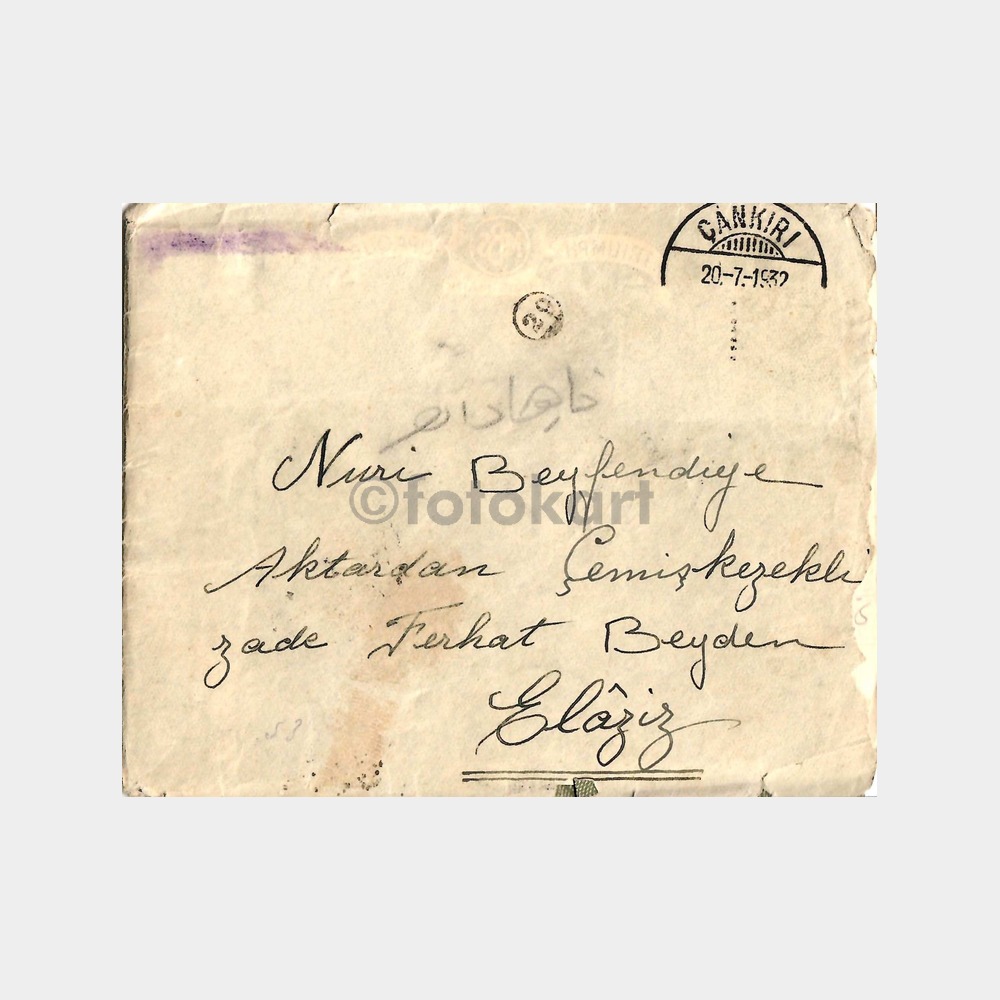 ÇANKIRI
20-7-1932
29
Nuri Beyfendiye
©fotokart
Aktardan Çemişkezekli
zade Ferhat Beyden
Elâziz